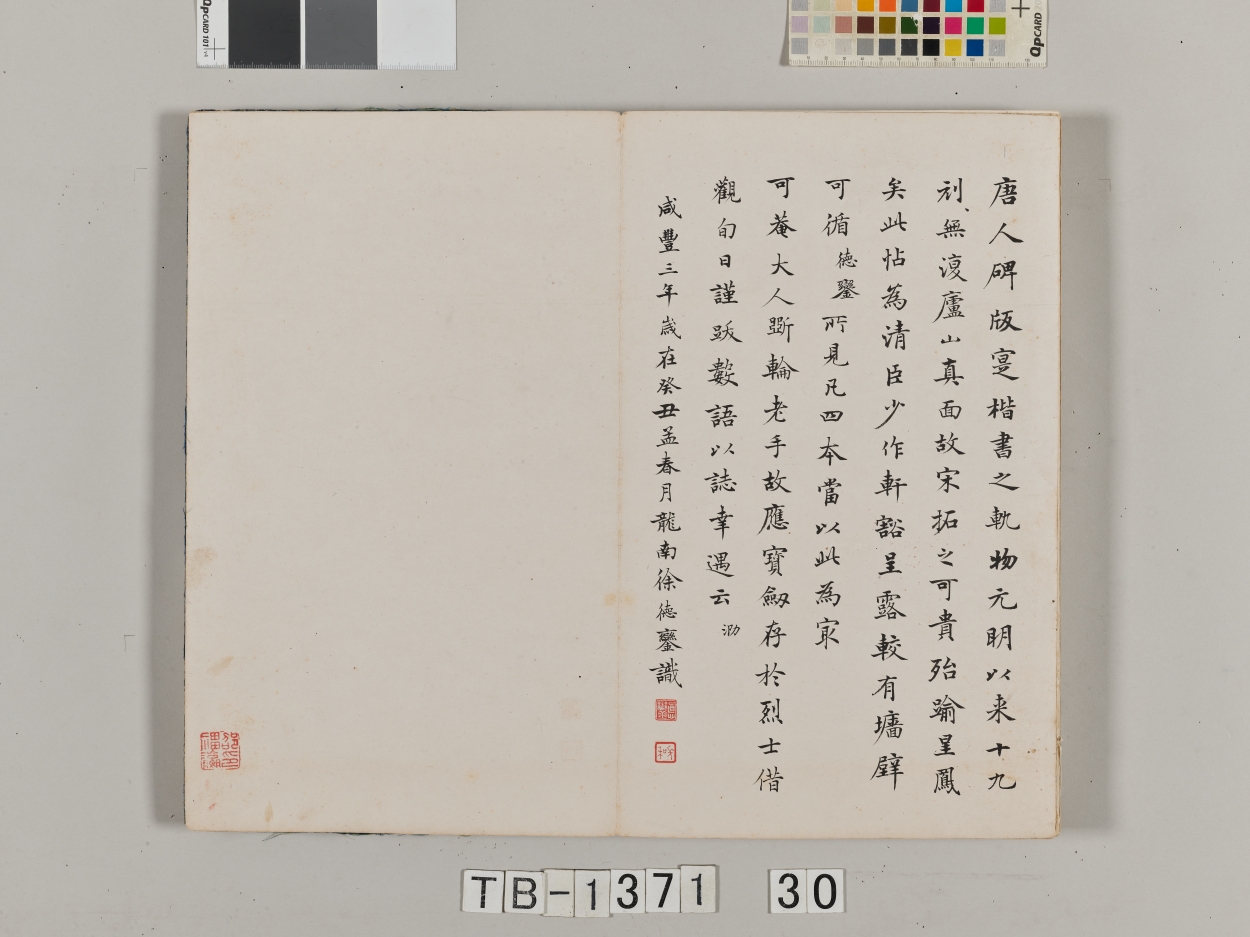 唐人碑版寔楷書之軌物元明以来十九
刓無復廬山真面故宋拓之可貴殆踰星鳳
矣此帖為清臣少作軒豁呈露較有墻壁
可循德鑾所見凡四本當以此為冣
可菴大人斲輪老手故應寶劔存於烈士借
觀旬日謹跋數語以誌幸遇云 泐
咸豐三年歲在癸丑孟春月龍南徐德鑾識
QPCARD 101 v4
QPCARD
TB-1371 30